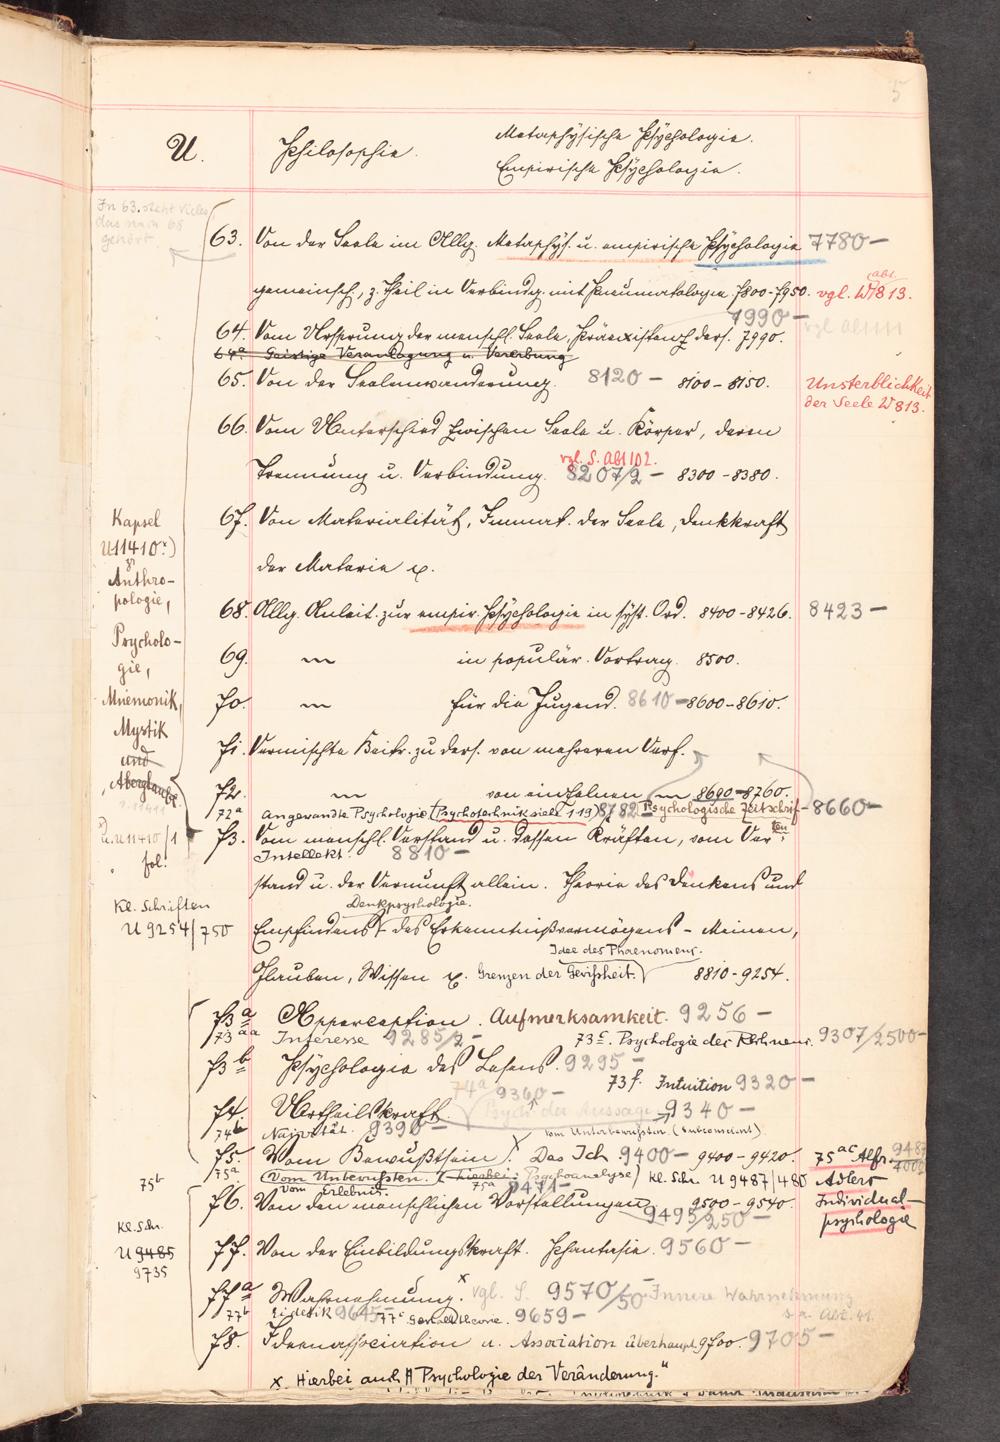 5
U. Philosophie. Metaphysische Psychologie.
Empirische Psychologie.
In 63. steht vieles
das nach 68
gehört.
63. Von der Seele im Allg. Metaphys. u. empirische Psychologie 7780 –
gemeinsch., z. Theil in Verbindg. mit Pneumatologie 7800-7950. vgl. W 813.
7990 –
64. Vom Ursprung der menschl. Seele, Präexistenz ders. 7990.
64a Geistige Veranlagung u. Vererbung
65. Von der Seelenwanderung. 8120 – 8100 - 8150.
Unsterblichkeit
der Seele W 813.
66. Vom Unterschied zwischen Seele u. Körper, deren
vgl. S. Abt 102.
Trennung u. Verbindung. 8207/2 – 8300 - 8380.
67. Von Materialität, Immat. der Seele, Denkkraft
der Materie
68. Allg. Anleit. zur empir. Psychologie in syst. Ord. 8400-8426. 8423 –
69. in populär. Vortrag. 8500.
70. für die Jugend. 8610 – 8600-8610.
71. Vermischte Beitr. zu ders. von mehreren Verf.
72. von einzelnen 8690-8760.
72a angewandte Psychologie (Psychotechnik siehe T 19) 8782 – Psychologische Zeitschrif-ten 8660 –
73. Vom menschl. Verstand u. dessen Kräften, vom Ver-
Intellekt. 8810 –
stand u. der Vernunft allein. Theorie des Denkens und
Denkpsychologie.
Empfindens, des Erkenntnißvermögens - Meinen,
Idee des Phaenomens.
Glauben, Wissen Grenzen der Gewißheit. 8810-9254.
Kapsel
U 11410
Anthro-
pologie,
Psycholo-
gie,
Mnemonik,
Mystik
und
Aberglaube
U 11410/1
fol.
Kl. Schriften
U 9254/750
73a Apperception. Aufmerksamkeit. 9256 –
73aa Interesse 9285/2 – 73c. Psychologie des Rechnens. 9307/2500 –
73b Psychologie des Lesens. 9295 –
73f. Intuition 9320 –
74a 9360 –
74. Urtheilskraft. Psych. der Aussage 9340 –
74b Naivität. 9390 – vom Unterbewussten. (Subconscient)
75. Vom Bewußtsein. Das Ich 9400 – 9400-9420. 75ac Alfr.
75a (Vom Unbewussten. (hierbei: Psychoanalyse) Kl. Schr. U 9487/480 Adlers
75b vom Erlebnis. 75a 9471 – Individual-
76. Von den menschlichen Vorstellungen 9500-9540. psychologie
9495/250 –
Kl. Schr.
U 9485
9735
77. Von der Einbildungskraft. Phantasie. 9560 –
77a Wahrnehmung. x vgl. S. 9570/50 – Innere Wahrnehmung
s. a. Abt. 41.
77b Eidetik 9645 – 77c Gestalttheorie. 9659 –
78. Ideenassociation u. Association überhaupt 9700. 9705 –
x. Hierbei auch A "Psychologie der Veränderung."